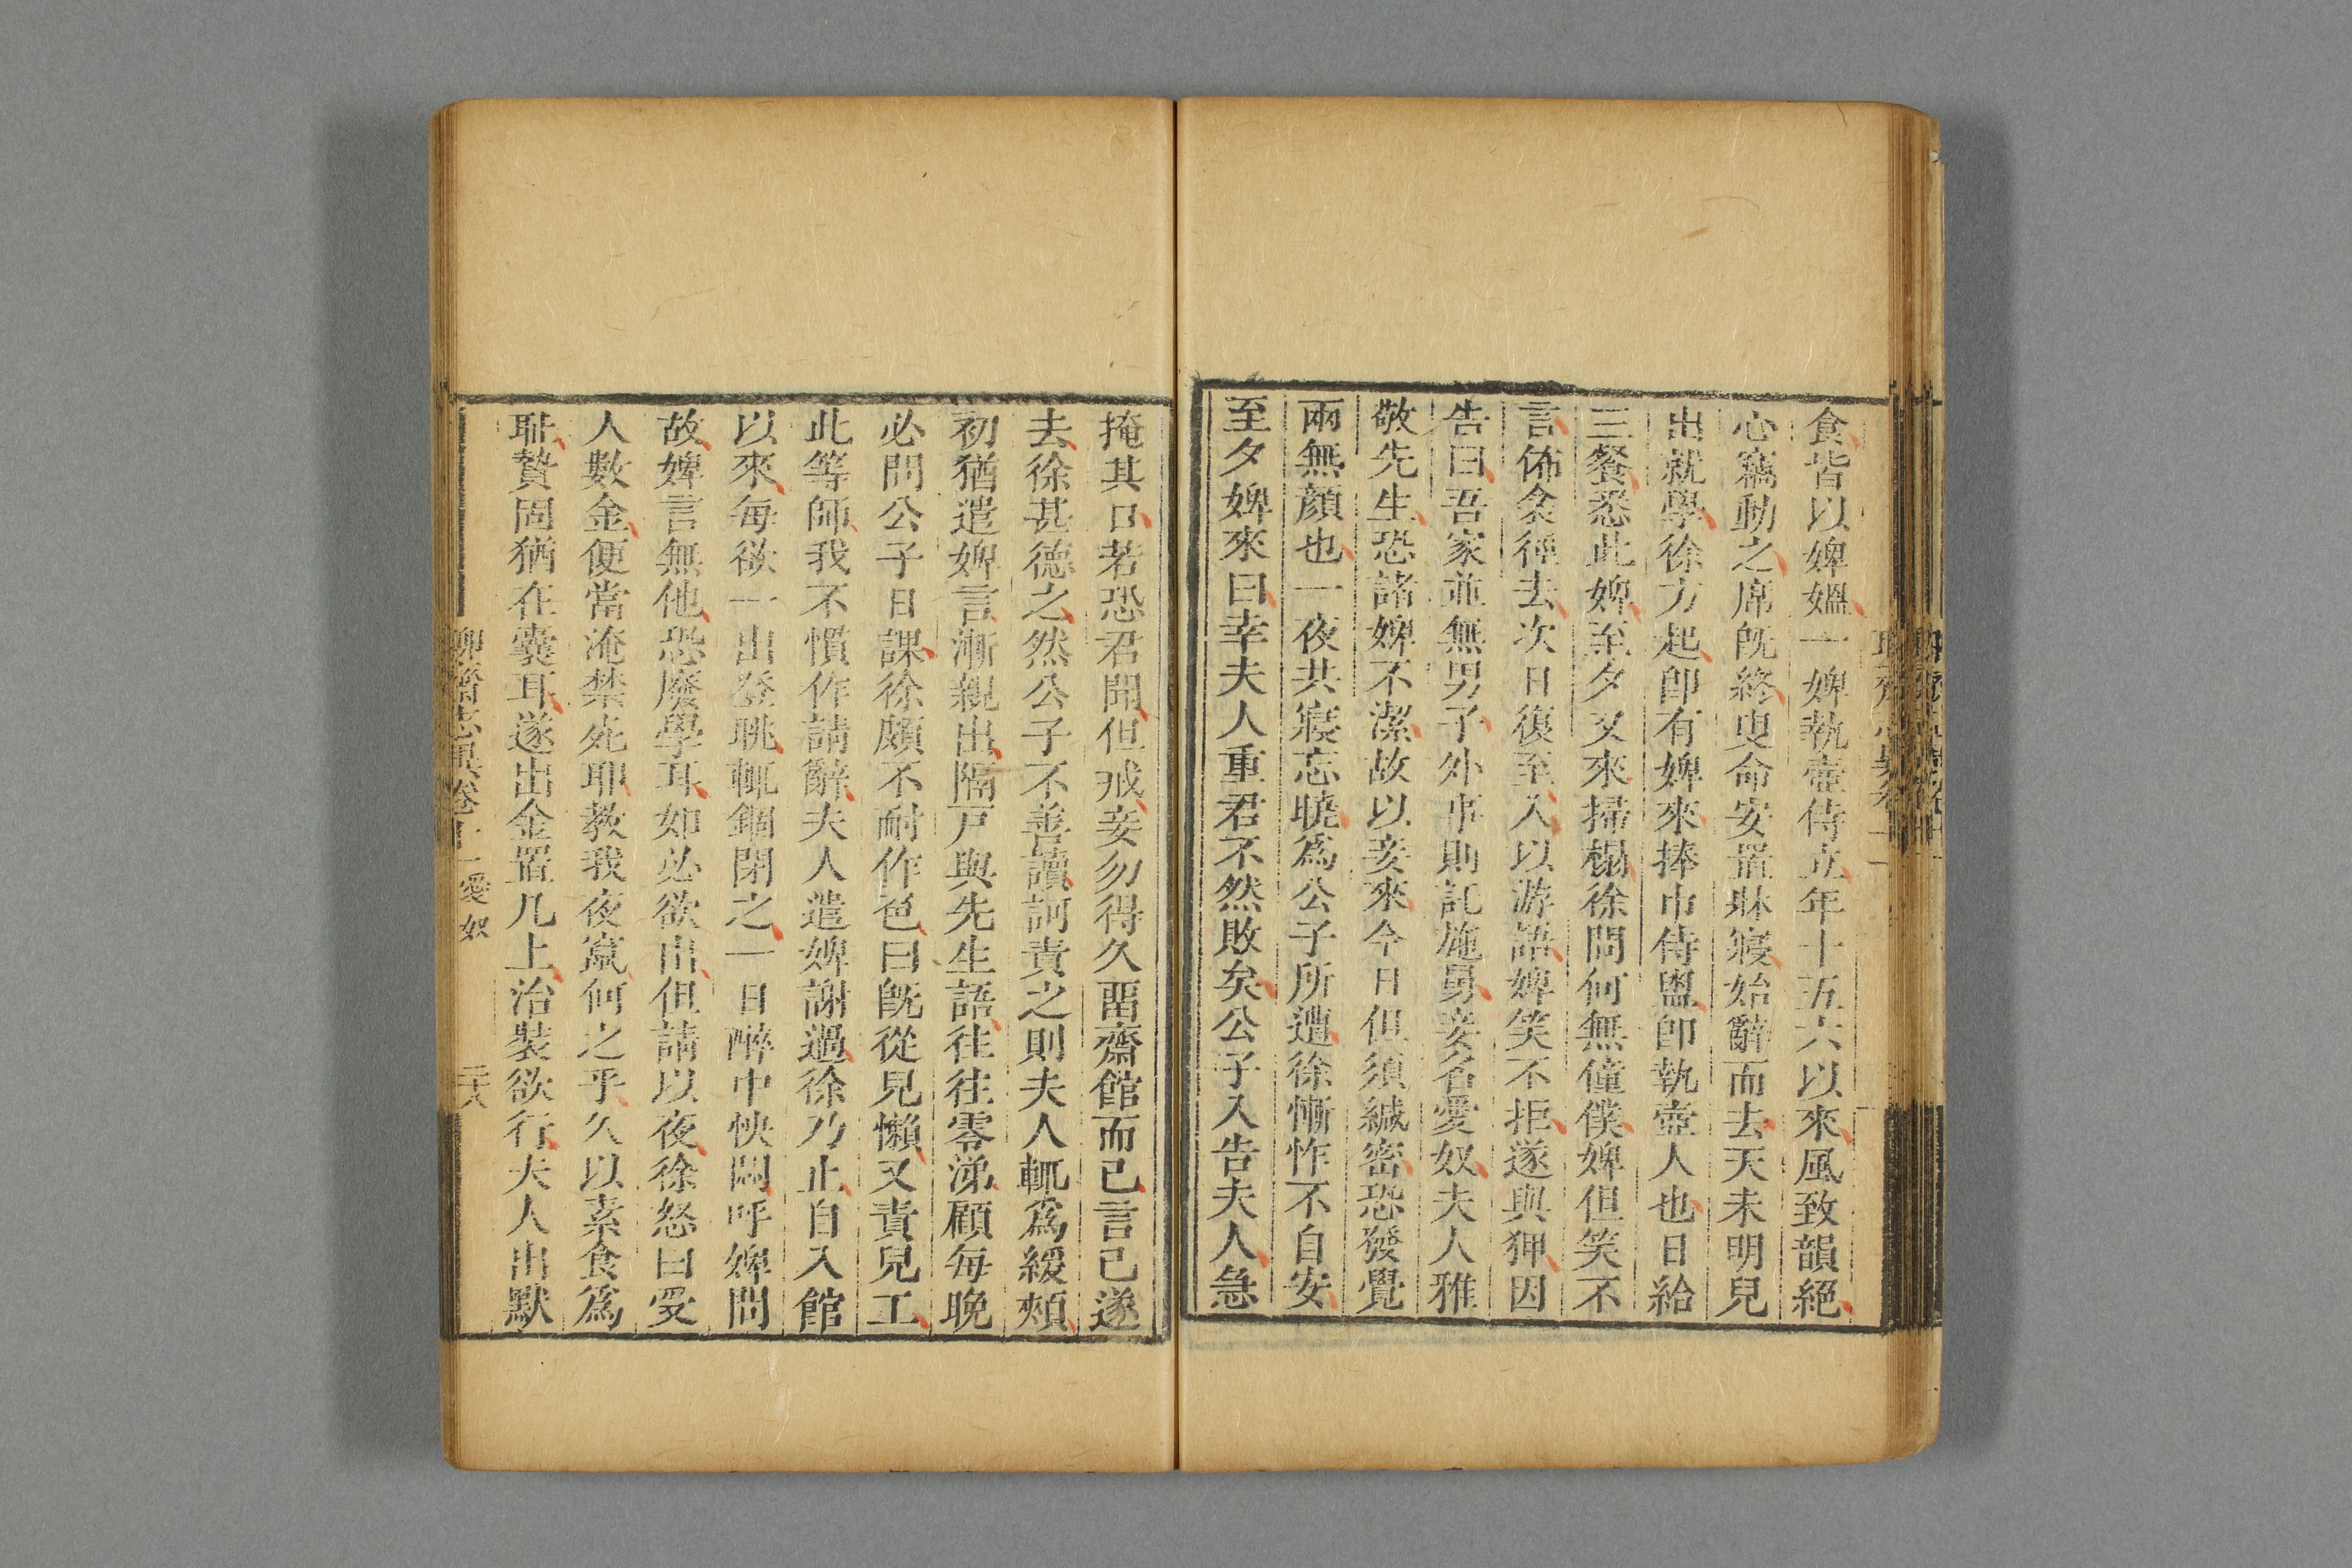 食皆以婢媼一婢執壺侍立年十五六以來風致韻絕
心竊動之席既終叟命安置牀寢始辭而去天未明兒
出就學徐方起卽有婢來捧巾侍盥卽執壺人也日給
三餐悉此婢至夕又來掃榻徐問何無僮僕婢但笑不
言佈衾徑去次日復至入以游語婢笑不拒遂與狎因
告曰吾家並無男子外事則託施舅妾名愛奴夫人雅
敬先生恐諸婢不潔故以妾來今日但須緘密恐發覺
兩無顏也一夜共寢忘曉爲公子所遭徐慚怍不自安
至夕婢來曰幸夫人重君不然敗矣公子入告夫人急
掩其口若恐君聞但戒妾勿得久畱齋館而已言已遂
去徐甚德之然公子不善讀訶責之則夫人輒爲緩頰
初猶遣婢言漸親出隔戸與先生語往往零涕顧每晚
必問公子日課徐頗不耐作色曰既從兒懶又責兒工
此等師我不慣作請辭夫人遣婢謝過徐乃止自入館
以來每欲一出登眺輒錮閉之一日醉中怏悶呼婢問
故婢言無他恐廢學耳如必欲出但請以夜徐怒曰受
人數金便當淹禁死耶教我夜竄何之乎久以素食爲
恥贄固猶在囊耳遂出金置几上治裝欲行夫人出默
聊齋志異卷十一 愛奴 二六